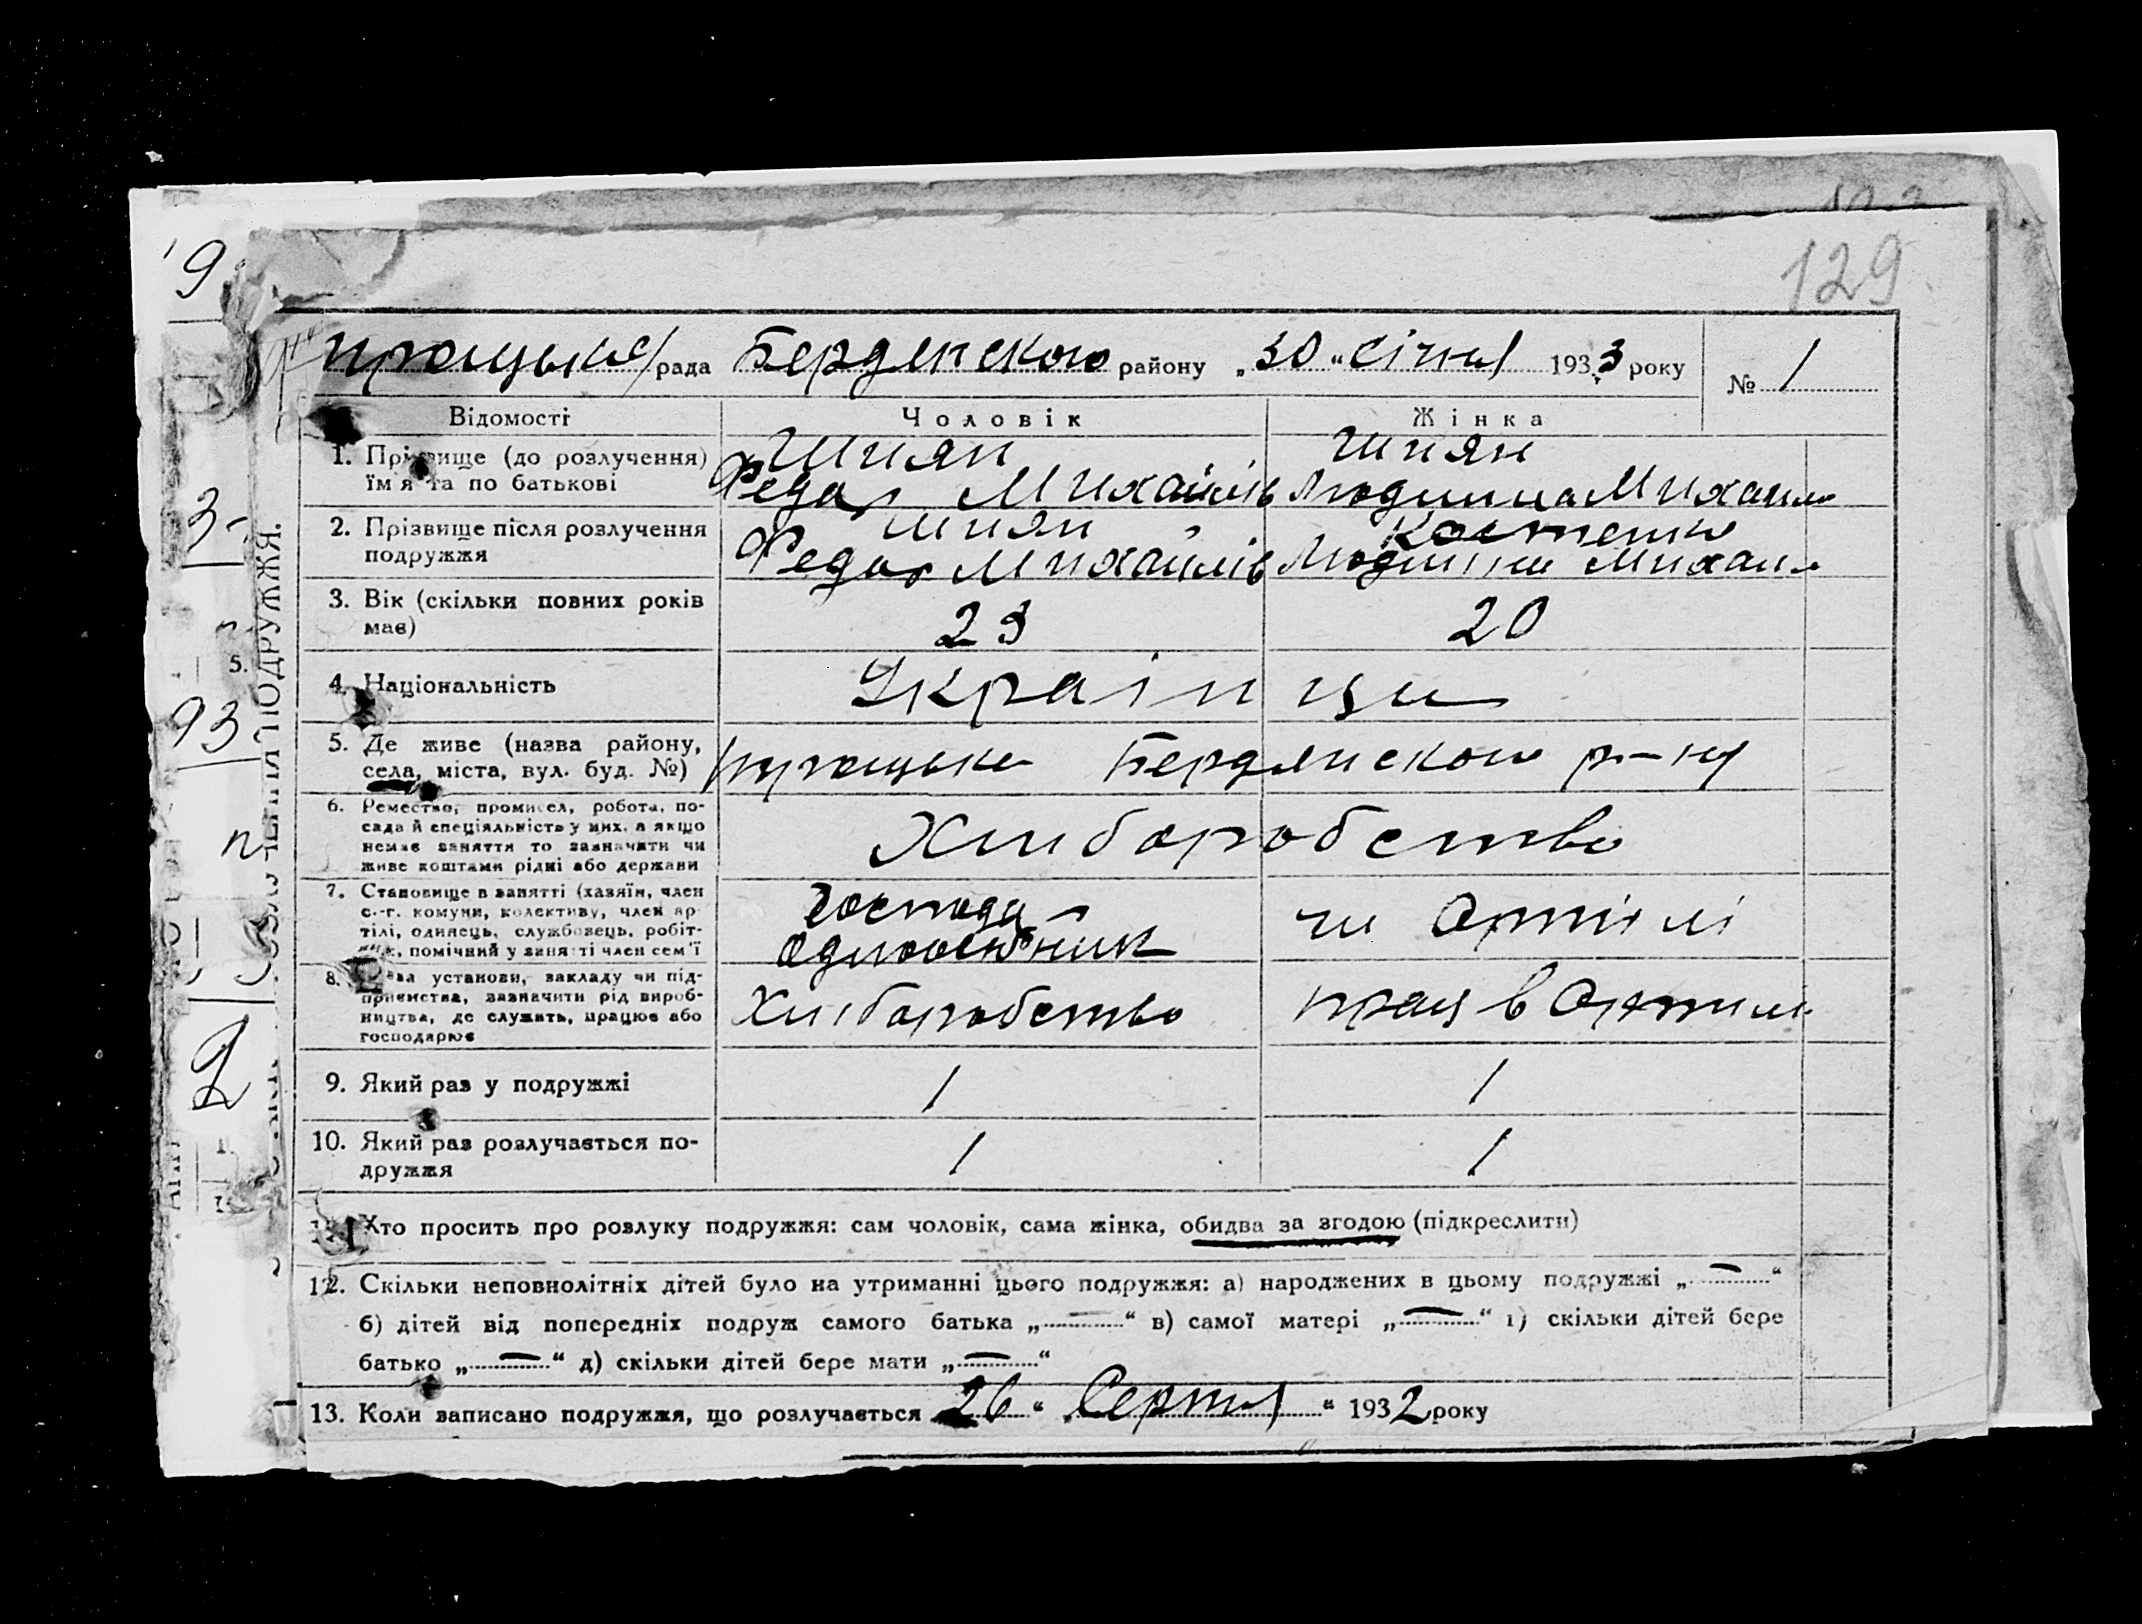 129
рада Бердянского району „30“ січня 1933 року № 1
Відомості Чоловік Жінка
1. Прізвище (до розлучення) їм'я та по батькові
Шиян Шиян
Федор Михайлів Людмила Михайл
2. Прізвище після розлучення подружжя
Шиян Костенко
Федор Михайлів Людмила Михайл
3. Вік (скільки повних років має)
23 20
4. Національність
Українци
5. Де живе (назва району, села, міста, вул. буд. №)
Бердянского р-ну
6. Ремество, промисел, робота, посада й спеціяльність у них, а якщо немає заняття то зазначити чи живе коштами рідні або держави
Хлиборобство
7. Становище в занятті (хазяїн, член с.-г. комуни, колективу, член артілі, одинець, службовець, робітник, помічний у занятті член сем'ї
Господар чл Артілі
одноосібник
8. Назва установи, закладу чи підприємства, зазначити рід виробництва, де служить, працює або господарює
Хлиборобство прац в Артили
9. Який раз у подружжі
1 1
10. Який раз розлучається подружжя
1 1
11. Хто просить про розлуку подружжя: сам чоловік, сама жінка, обидва за згодою (підкреслити)
12. Скільки неповнолітніх дітей було на утриманні цього подружжя: а) народжених в цьому подружжі „—“
б) дітей від попередніх подруж самого батька „—“ в) самої матері „—“ г) скільки дітей бере
батько „—“ д) скільки дітей бере мати „—“
13. Коли записано подружжя, що розлучається 26 „Серпня“ 1932 року